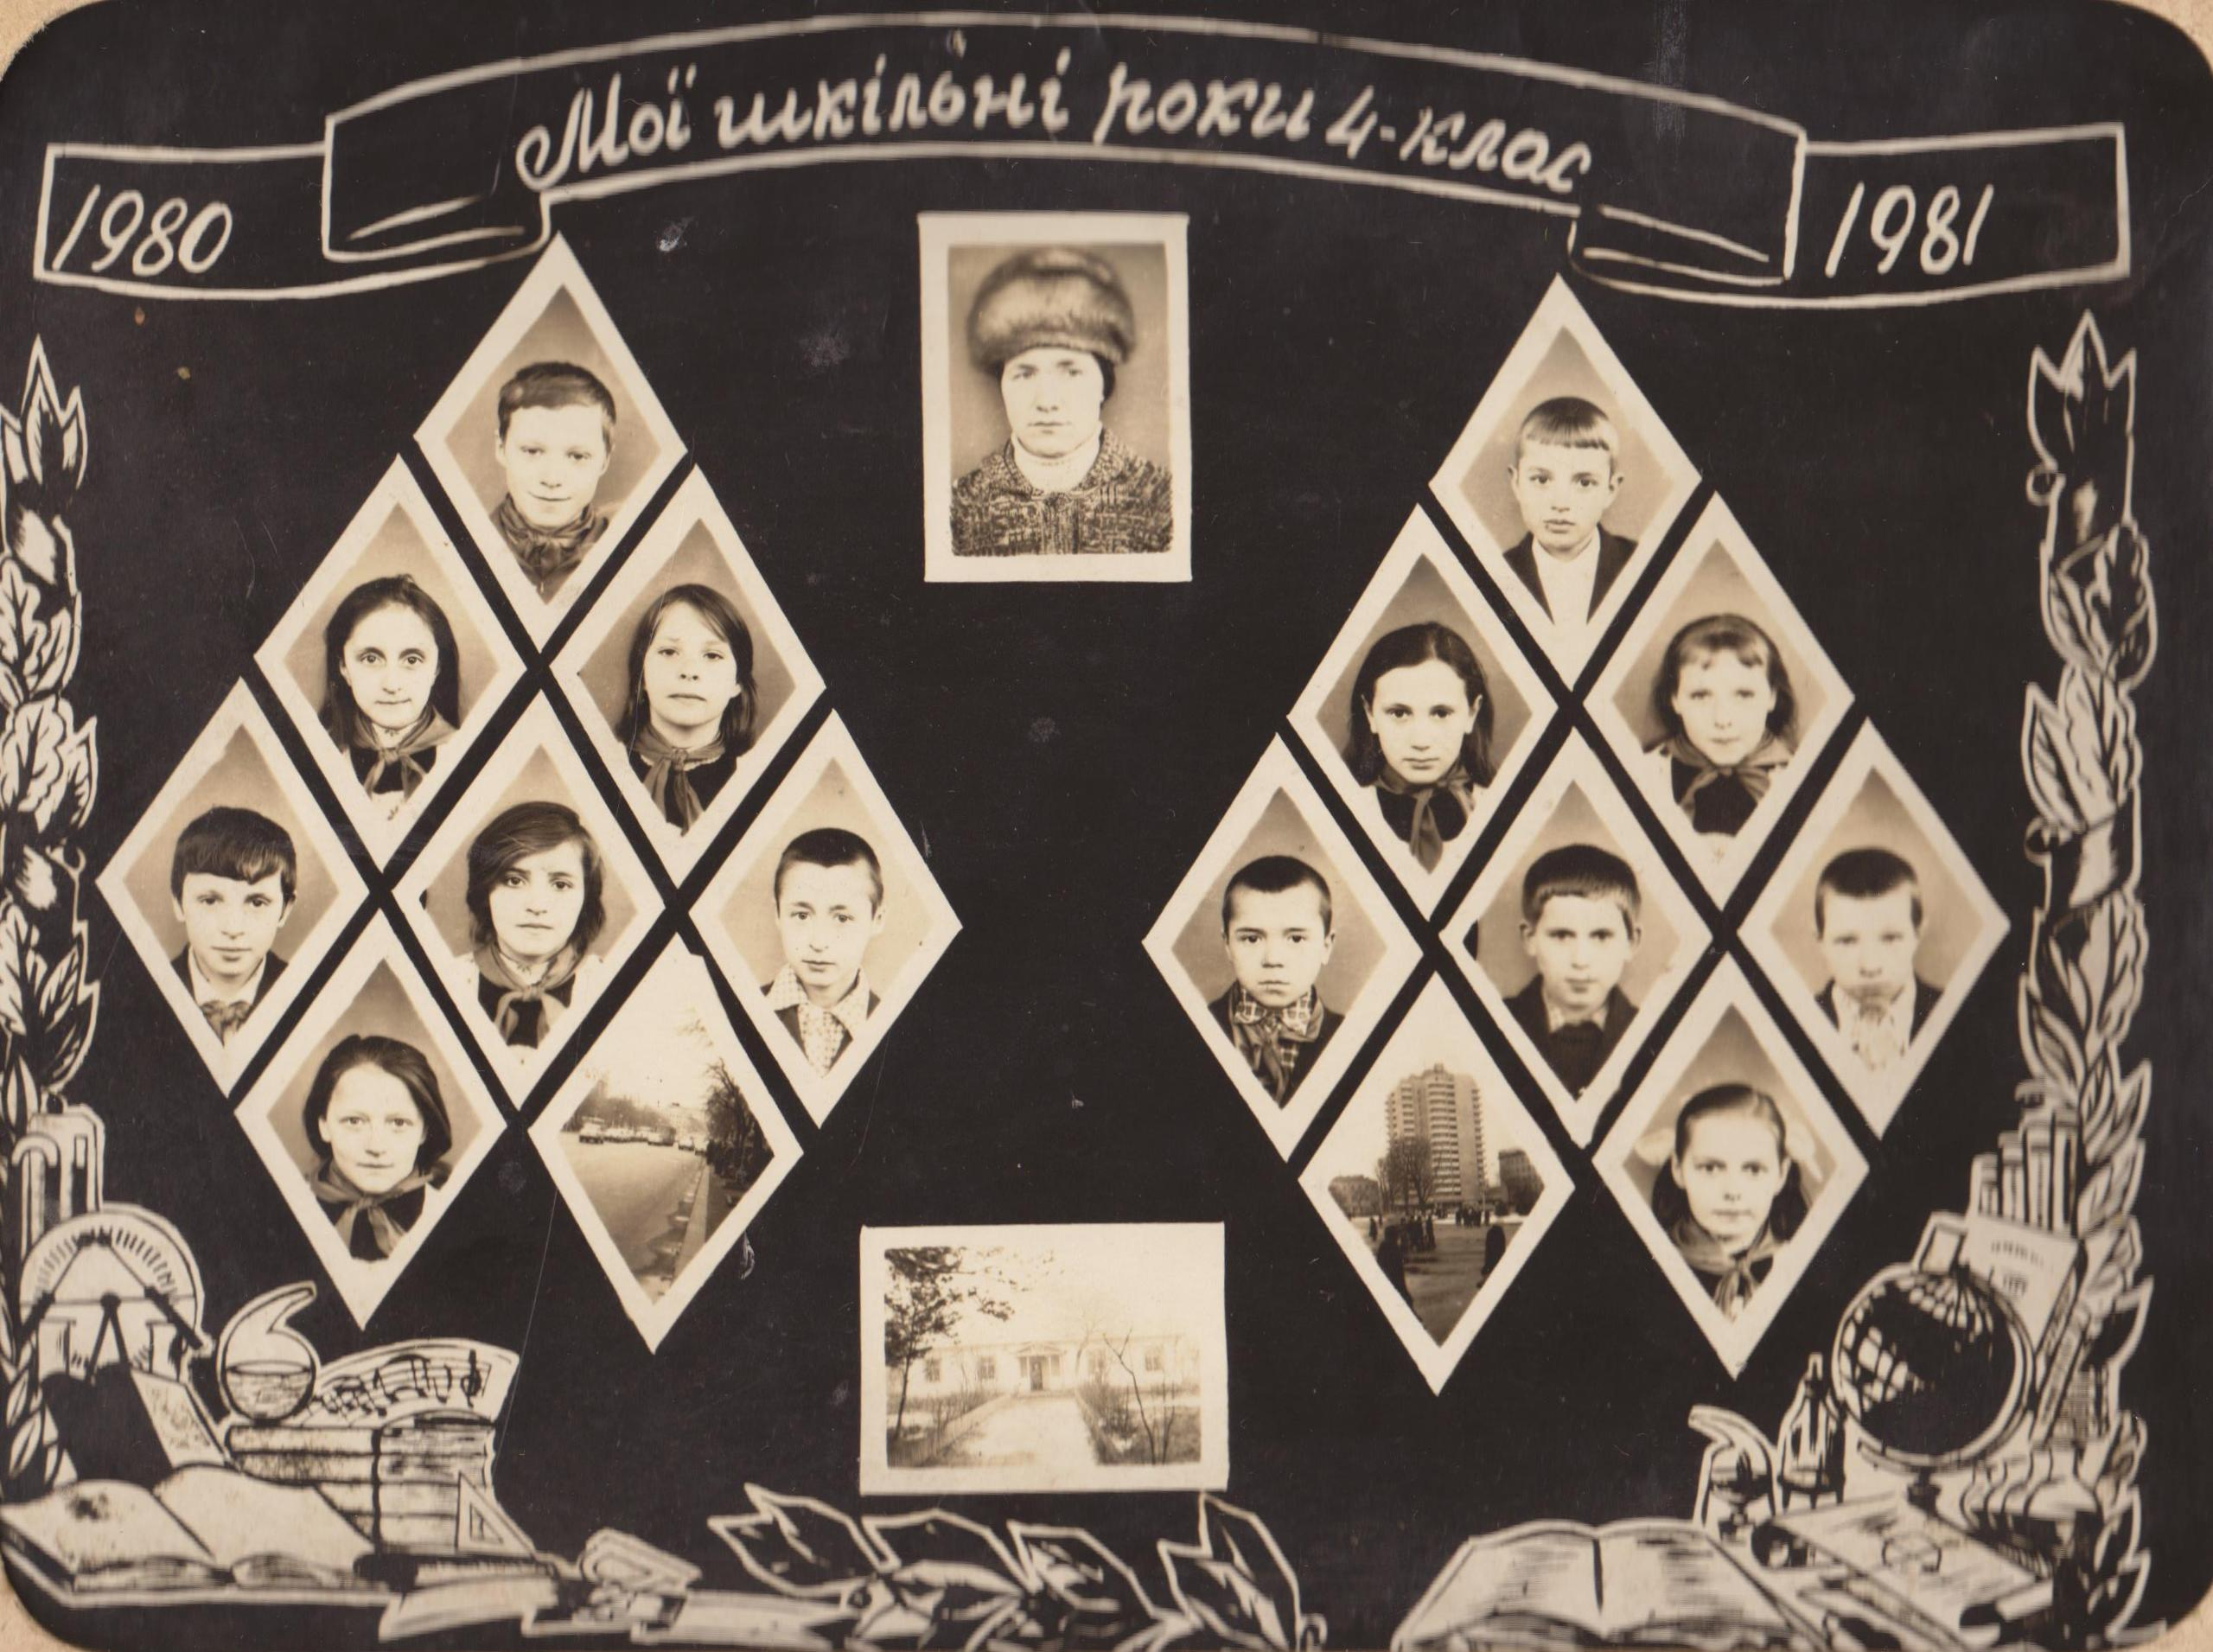 Мої шкільні роки 4-клас
1980
1981